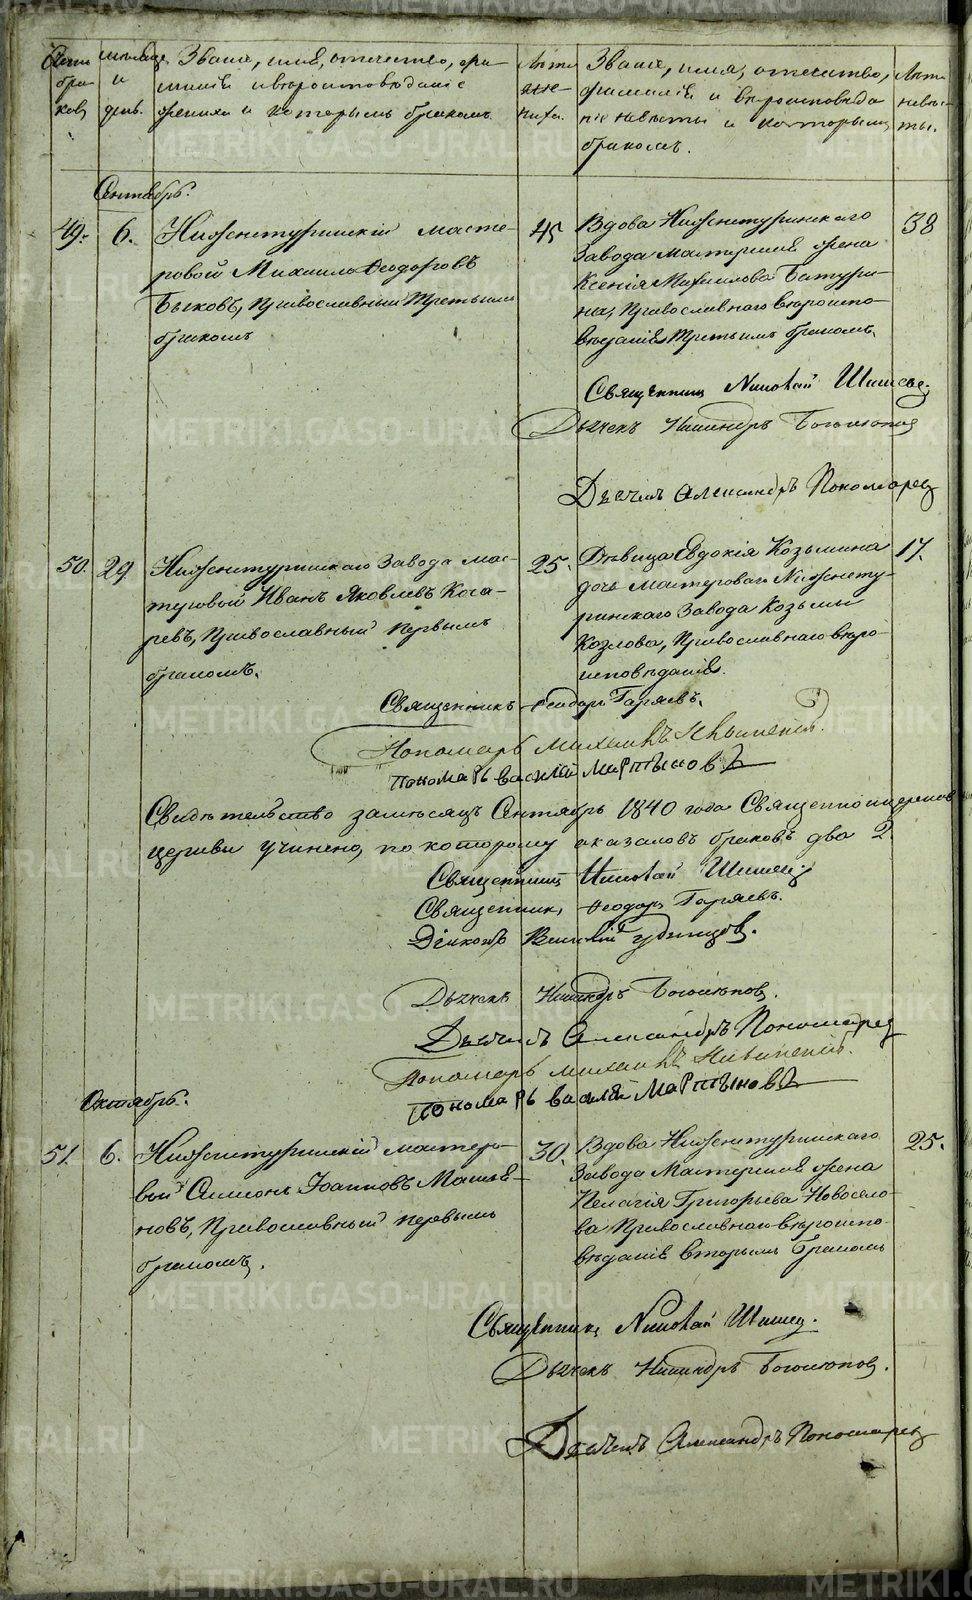 Счетъ браковъ
мѣсяцъ и день.
Званіе, имя, отечество, фа-
милія и вѣроисповѣданіе
жениха и которымъ бракомъ.
Лѣта жениха.
Званіе, имя, отечество,
фамилія и вѣроисповѣда
ніе невѣсты и которымъ
бракомъ.
Лѣта невѣс-
ты.
Сентябрь.
49. 6. Нижнетуринскій масте-
ровой Михаилъ Ѳеодоровъ
Быковъ, Православный Третьимъ
бракомъ
45
Вдова Нижнетуринскаго
Завода мастерская жена
Ксенія Михаилова Батури-
на, Православнаго вѣроиспо-
вѣданія Третьимъ бракомъ.
38
Священникъ Николай Шишевъ.
Дьячекъ Никандръ Боголюповъ
Дьячекъ Александръ Пономаревъ
50. 29 Нижнетуринскаго Завода мас-
теровой Иванъ Яковлевъ Коса-
ревъ, Православный Первымъ
бракомъ.
25.
Дѣвица Евдокія Козьмина
дочь мастероваго Нижнету-
ринскаго Завода Козьмы
Козлова, Православнаго вѣро-
исповѣданія.
17.
Священникъ Ѳеодоръ Гаряевъ.
Пономарь Михаилъ
Пономарь Василей Мартыновъ
Свидѣтельство за мѣсяцъ Сентябрь 1840 года Священно
церкви учинено, по которому оказалось браковъ два 2.
Священникъ Николай Шишевъ
Священникъ Ѳеодоръ Гаряевъ.
Діаконъ Василій Удинцовъ.
Дьячекъ Никандръ Боголюповъ.
Дьячекъ Александръ Пономаревъ
Пономарь Михаилъ
Пономарь Василей Мартыновъ
Октябрь.
51. 6. Нижнетуринскій мастеро-
вой Симеонъ Іоанновъ
новъ, Православный первымъ
бракомъ.
30.
Вдова Нижнетуринскаго
Завода Мастерская жена
Пелагія Григорьева Новосело-
ва Православнаго вѣроиспо
вѣданія вторымъ бракомъ
25.
Священникъ Николай Шишевъ.
Дьячекъ Никандръ Боголюповъ.
Дьячекъ Александръ Пономаревъ
METRIKI.GASO-URAL.RU